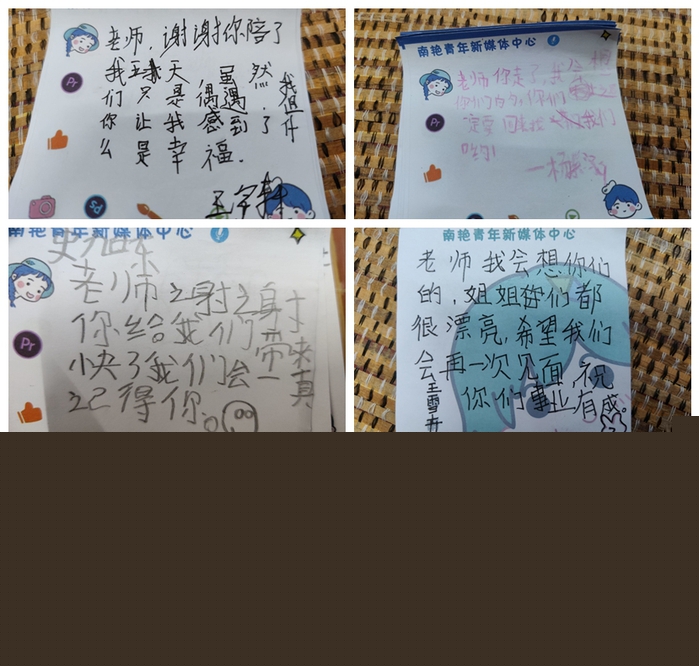 老师，谢谢你陪了
我五天，虽然我
们只是偶遇，但
你让我感到了什
么是幸福。
南艳青年新媒体中心
Pr
老师你走了，我会想
你们的，你们
一定要回来找我们
哟！
南艳青年新媒体中心
Pr
老师谢谢
你给我们带来
快了我们会一真
记得你。
南艳青年新媒体中心
老师我会想你们
的，姐姐你们都
很漂亮，希望我们
会再一次见面，祝
你们事业有成。